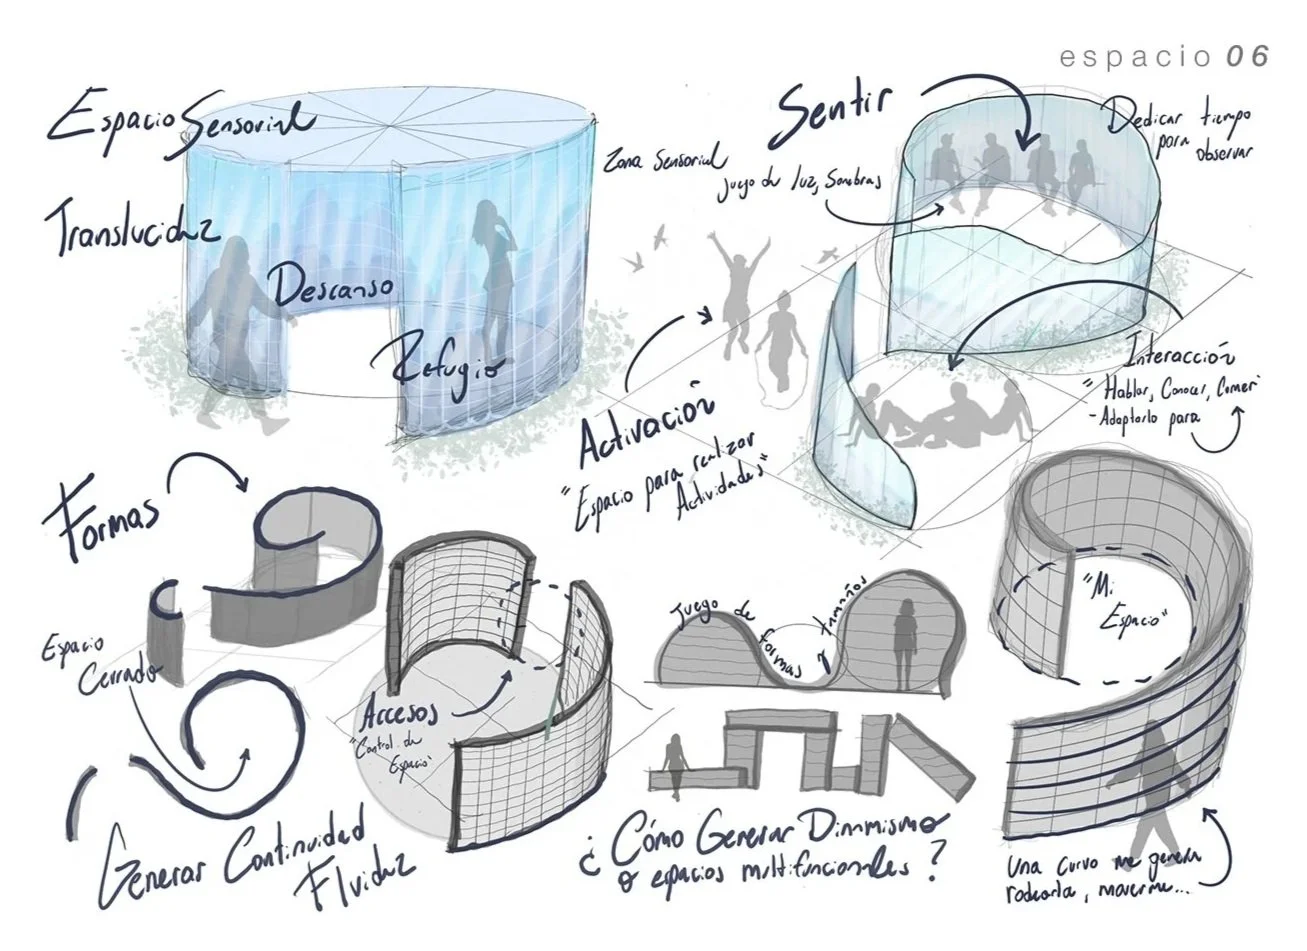 espacio 06
Espacio Sensorial
Translucidez
Descanso
Refugio
Zona Sensorial
Sentir
juego de luz, Sombras
Dedicar tiempo
para
observar
Activación
"Espacio para realizar
Actividades"
Interacción
"Hablar, Conocer, Comer"
- Adaptarlo para
Formas
Espacio
Cerrado
Generar Continuidad
Fluidez
Accesos
"Control de
Espacio"
Juego de
formas y tamaños
"Mi
Espacio"
¿Cómo Generar Dinamismo
o espacios multifuncionales?
Una curva me genera
rodearla, moverme...